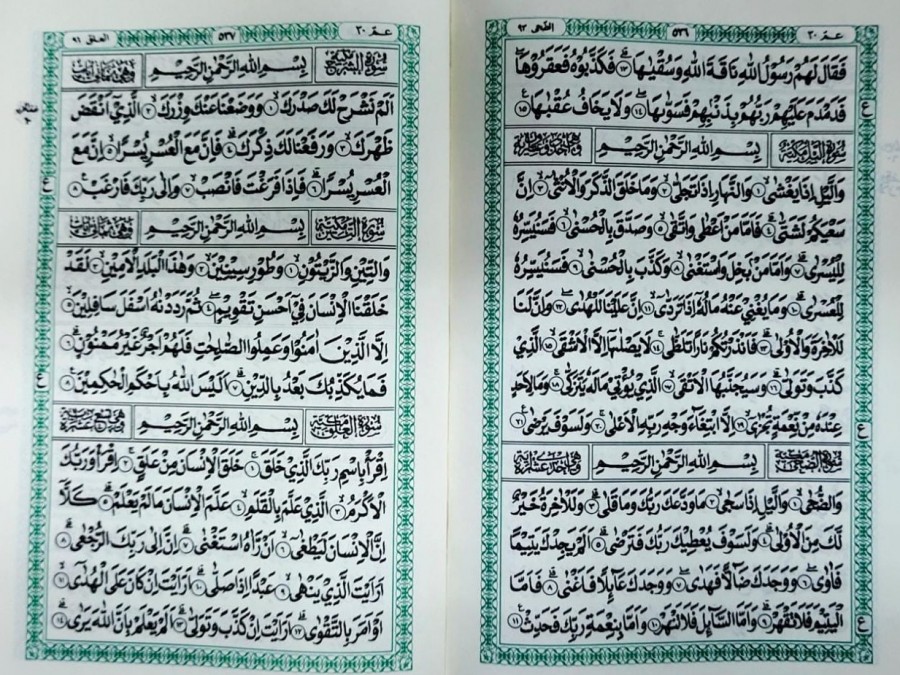 عمّ ٣٠
٥٣٦
الضّحٰى ٩٣
فَقَالَ لَهُمْ رَسُوْلُ اللّٰهِ نَاقَةَ اللّٰهِ وَسُقْيٰهَا ۝١٣ فَكَذَّبُوْهُ فَعَقَرُوْهَا
فَدَمْدَمَ عَلَيْهِمْ رَبُّهُمْ بِذَنْۢبِهِمْ فَسَوّٰىهَا ۝١٤ وَلَا يَخَافُ عُقْبٰهَا ۝١٥
سُوْرَةُ الَّيْلِ مَكِّيَّةٌ بِسْمِ اللّٰهِ الرَّحْمٰنِ الرَّحِيْمِ وَهِيَ اِحْدٰى وَعِشْرُوْنَ اٰيَةً
وَالَّيْلِ اِذَا يَغْشٰى ۝١ وَالنَّهَارِ اِذَا تَجَلّٰى ۝٢ وَمَا خَلَقَ الذَّكَرَ وَالْاُنْثٰى ۝٣ اِنَّ
سَعْيَكُمْ لَشَتّٰى ۝٤ فَاَمَّا مَنْ اَعْطٰى وَاتَّقٰى ۝٥ وَصَدَّقَ بِالْحُسْنٰى ۝٦ فَسَنُيَسِّرُهٗ
لِلْيُسْرٰى ۝٧ وَاَمَّا مَنْۢ بَخِلَ وَاسْتَغْنٰى ۝٨ وَكَذَّبَ بِالْحُسْنٰى ۝٩ فَسَنُيَسِّرُهٗ
لِلْعُسْرٰى ۝١٠ وَمَا يُغْنِيْ عَنْهُ مَالُهٗٓ اِذَا تَرَدّٰى ۝١١ اِنَّ عَلَيْنَا لَلْهُدٰى ۝١٢ وَاِنَّ لَنَا
لَلْاٰخِرَةَ وَالْاُوْلٰى ۝١٣ فَاَنْذَرْتُكُمْ نَارًا تَلَظّٰى ۝١٤ لَا يَصْلٰىهَآ اِلَّا الْاَشْقَى ۝١٥ الَّذِيْ
كَذَّبَ وَتَوَلّٰى ۝١٦ وَسَيُجَنَّبُهَا الْاَتْقَى ۝١٧ الَّذِيْ يُؤْتِيْ مَالَهٗ يَتَزَكّٰى ۝١٨ وَمَا لِاَحَدٍ
عِنْدَهٗ مِنْ نِّعْمَةٍ تُجْزٰٓى ۝١٩ اِلَّا ابْتِغَآءَ وَجْهِ رَبِّهِ الْاَعْلٰى ۝٢٠ وَلَسَوْفَ يَرْضٰى ۝٢١
سُوْرَةُ الضُّحٰى مَكِّيَّةٌ بِسْمِ اللّٰهِ الرَّحْمٰنِ الرَّحِيْمِ وَهِيَ اِحْدٰى عَشْرَةَ اٰيَةً
وَالضُّحٰى ۝١ وَالَّيْلِ اِذَا سَجٰى ۝٢ مَا وَدَّعَكَ رَبُّكَ وَمَا قَلٰى ۝٣ وَلَلْاٰخِرَةُ خَيْرٌ
لَّكَ مِنَ الْاُوْلٰى ۝٤ وَلَسَوْفَ يُعْطِيْكَ رَبُّكَ فَتَرْضٰى ۝٥ اَلَمْ يَجِدْكَ يَتِيْمًا
فَاٰوٰى ۝٦ وَوَجَدَكَ ضَآلًّا فَهَدٰى ۝٧ وَوَجَدَكَ عَآئِلًا فَاَغْنٰى ۝٨ فَاَمَّا
الْيَتِيْمَ فَلَا تَقْهَرْ ۝٩ وَاَمَّا السَّآئِلَ فَلَا تَنْهَرْ ۝١٠ وَاَمَّا بِنِعْمَةِ رَبِّكَ فَحَدِّثْ ۝١١
ع
ع
ع
عمّ ٣٠
٥٣٧
العلق ٩٦
بِسْمِ اللّٰهِ الرَّحْمٰنِ الرَّحِيْمِ وَهِيَ ثَمَانِيْ اٰيَاتٍ
اَلَمْ نَشْرَحْ لَكَ صَدْرَكَ ۝١ وَوَضَعْنَا عَنْكَ وِزْرَكَ ۝٢ الَّذِيْٓ اَنْقَضَ
ظَهْرَكَ ۝٣ وَرَفَعْنَا لَكَ ذِكْرَكَ ۝٤ فَاِنَّ مَعَ الْعُسْرِ يُسْرًا ۝٥ اِنَّ مَعَ
الْعُسْرِ يُسْرًا ۝٦ فَاِذَا فَرَغْتَ فَانْصَبْ ۝٧ وَاِلٰى رَبِّكَ فَارْغَبْ ۝٨
سُوْرَةُ التِّيْنِ مَكِّيَّةٌ بِسْمِ اللّٰهِ الرَّحْمٰنِ الرَّحِيْمِ وَهِيَ ثَمَانِيْ اٰيَاتٍ
وَالتِّيْنِ وَالزَّيْتُوْنِ ۝١ وَطُوْرِ سِيْنِيْنَ ۝٢ وَهٰذَا الْبَلَدِ الْاَمِيْنِ ۝٣ لَقَدْ
خَلَقْنَا الْاِنْسَانَ فِيْٓ اَحْسَنِ تَقْوِيْمٍ ۝٤ ثُمَّ رَدَدْنٰهُ اَسْفَلَ سَافِلِيْنَ ۝٥
اِلَّا الَّذِيْنَ اٰمَنُوْا وَعَمِلُوا الصّٰلِحٰتِ فَلَهُمْ اَجْرٌ غَيْرُ مَمْنُوْنٍ ۝٦
فَمَا يُكَذِّبُكَ بَعْدُ بِالدِّيْنِ ۝٧ اَلَيْسَ اللّٰهُ بِاَحْكَمِ الْحٰكِمِيْنَ ۝٨
سُوْرَةُ الْعَلَقِ مَكِّيَّةٌ بِسْمِ اللّٰهِ الرَّحْمٰنِ الرَّحِيْمِ وَهِيَ تِسْعَ عَشْرَةَ اٰيَةً
اِقْرَاْ بِاسْمِ رَبِّكَ الَّذِيْ خَلَقَ ۝١ خَلَقَ الْاِنْسَانَ مِنْ عَلَقٍ ۝٢ اِقْرَاْ وَرَبُّكَ
الْاَكْرَمُ ۝٣ الَّذِيْ عَلَّمَ بِالْقَلَمِ ۝٤ عَلَّمَ الْاِنْسَانَ مَا لَمْ يَعْلَمْ ۝٥ كَلَّآ
اِنَّ الْاِنْسَانَ لَيَطْغٰٓى ۝٦ اَنْ رَّاٰهُ اسْتَغْنٰى ۝٧ اِنَّ اِلٰى رَبِّكَ الرُّجْعٰى ۝٨
اَرَاَيْتَ الَّذِيْ يَنْهٰى ۝٩ عَبْدًا اِذَا صَلّٰى ۝١٠ اَرَاَيْتَ اِنْ كَانَ عَلَى الْهُدٰٓى ۝١١
اَوْ اَمَرَ بِالتَّقْوٰى ۝١٢ اَرَاَيْتَ اِنْ كَذَّبَ وَتَوَلّٰى ۝١٣ اَلَمْ يَعْلَمْ بِاَنَّ اللّٰهَ يَرٰى ۝١٤
ع
ع